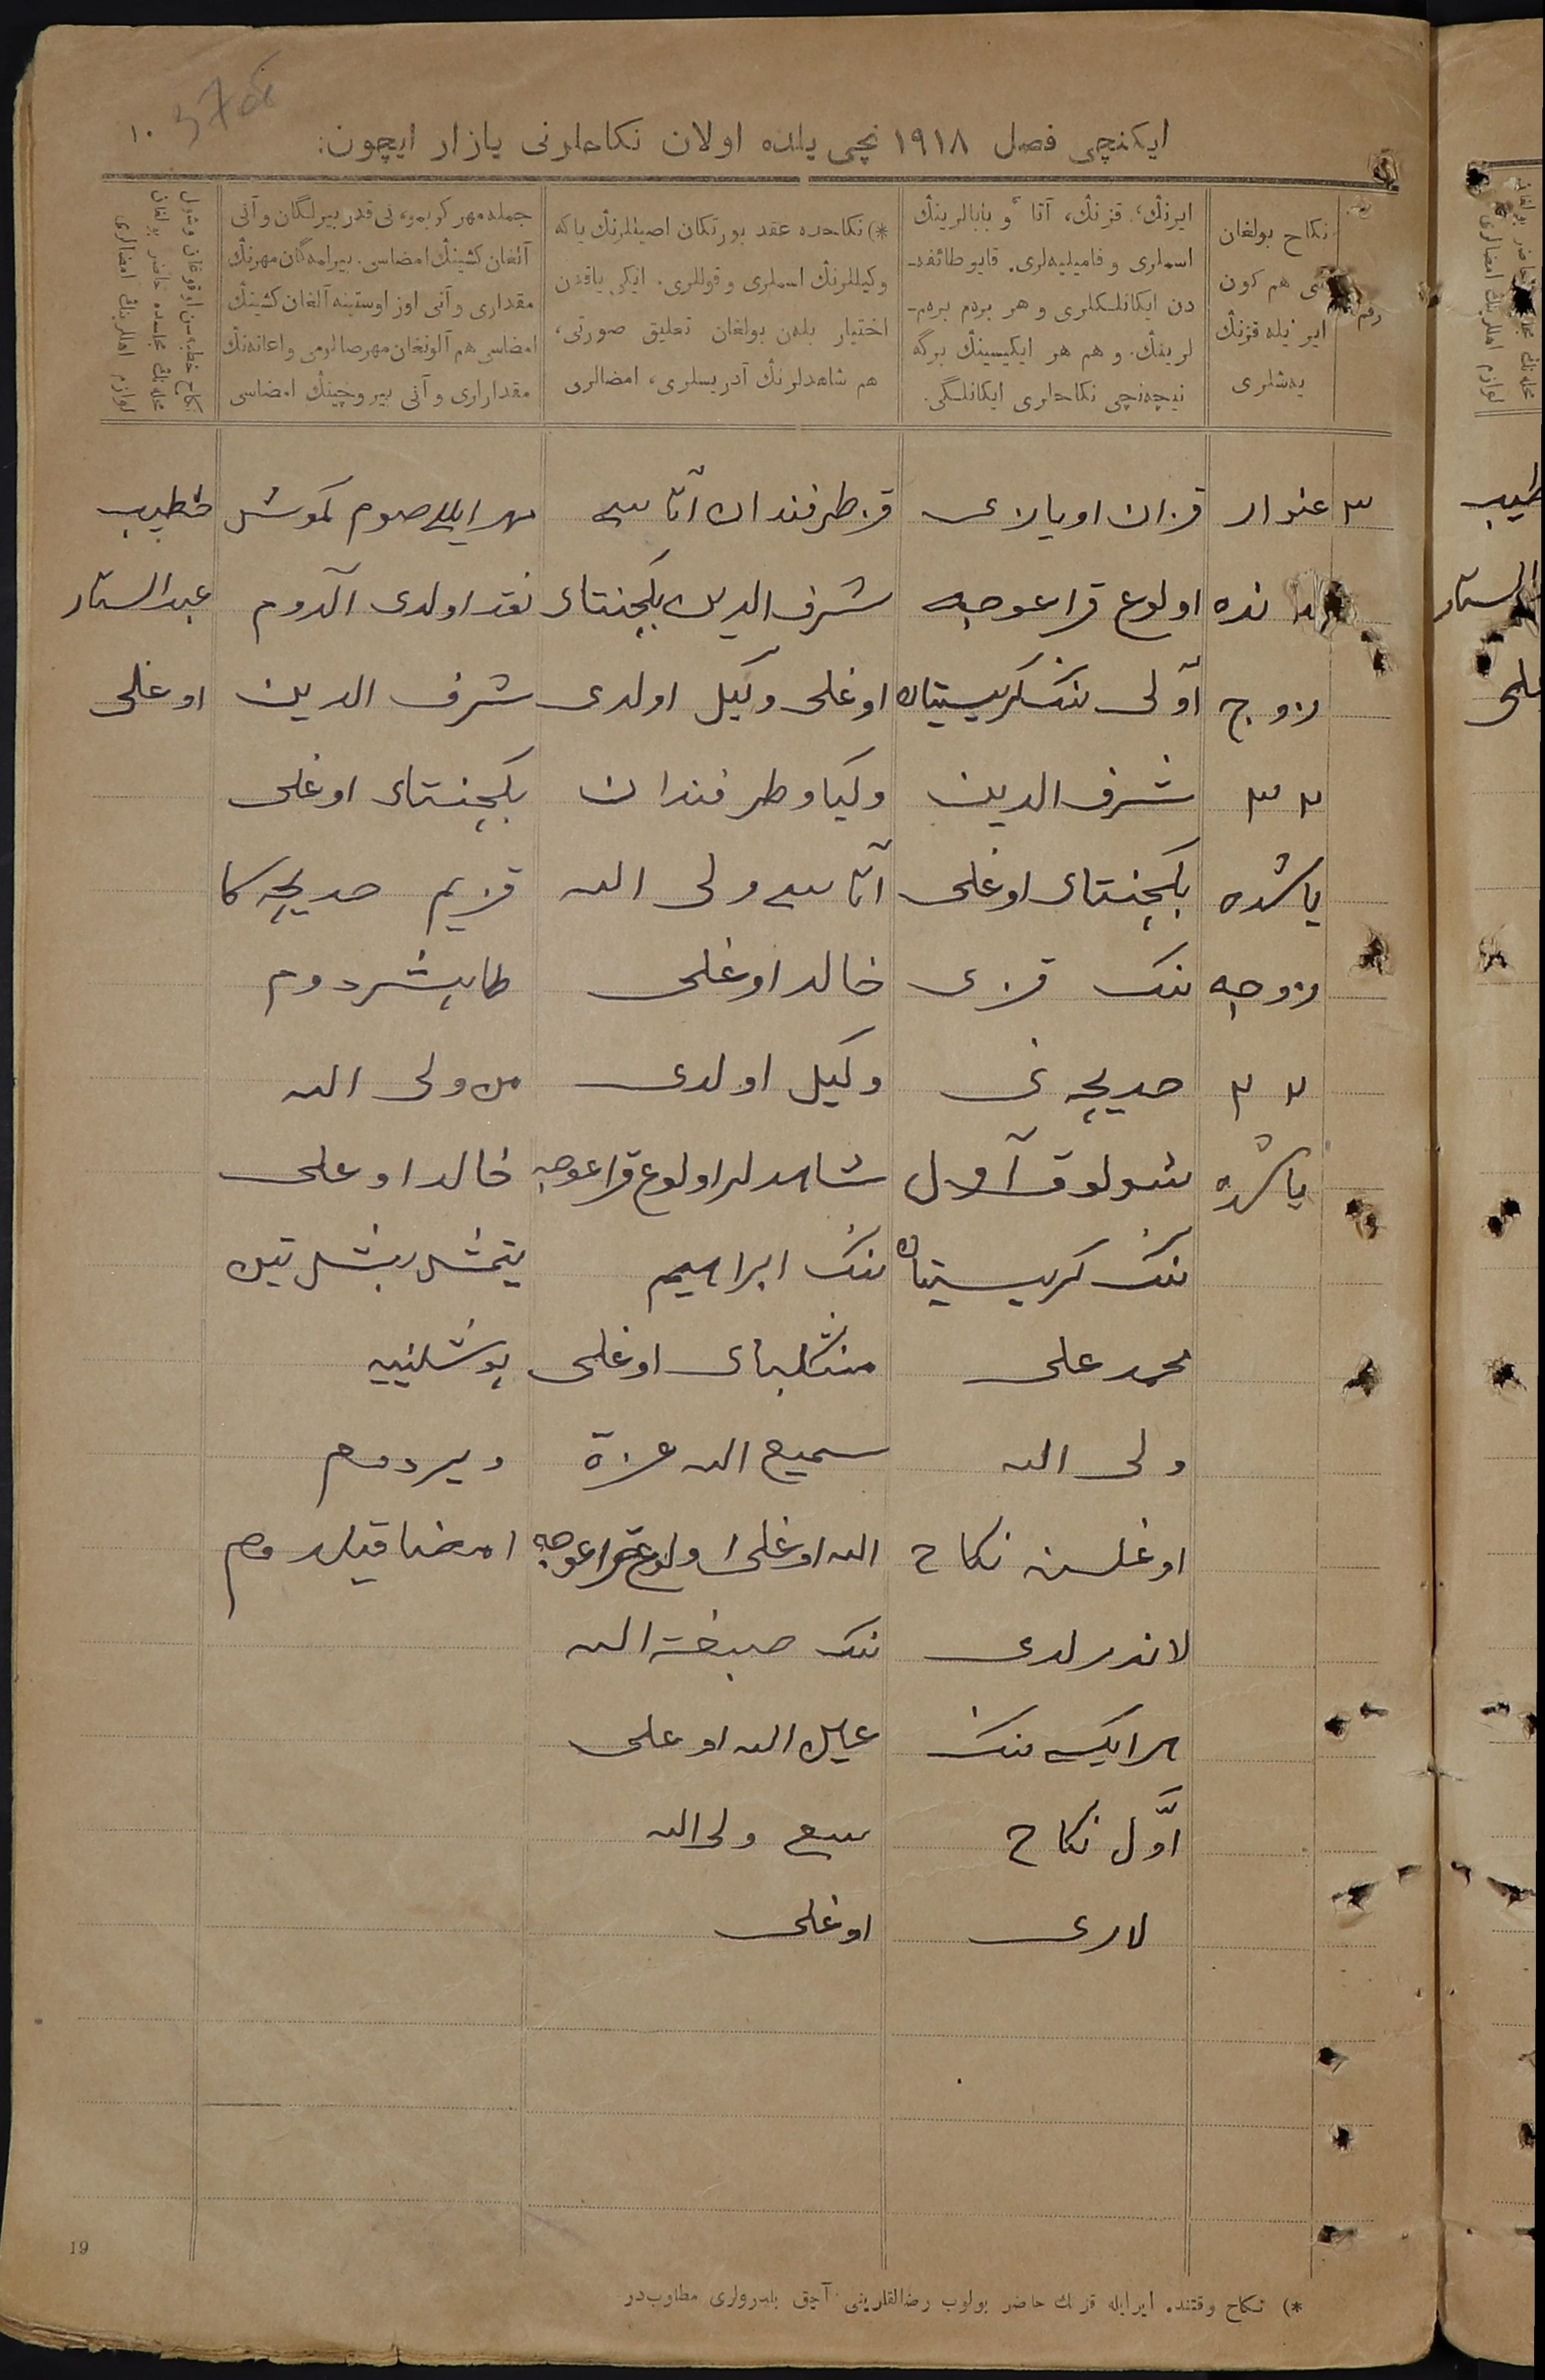 ١٠
ایکنچی فصل ١٩١٨ نچی یلده اولان نکاحلرنی یازار ایچون:
رقم
نکاح بولغان
هم کون
ایر ‌یله قزنڭ
یه‌شلری
ایرنڭ، قزنڭ، آتا و بابالرینڭ
اسملری و فامیلیه‌لری. قایو طائفه‌-
دن ایکانلکلری و هر بردم بردم-
لرینڭ. و هم هر ایکیسینڭ برگه
نیچه‌نچی نکاحلری ایکانلگی.
*) نکاحده عقد بورتکان اصیللرنڭ یاکه
وکیللرنڭ اسملری و قوللری. ایکی یاقدن
اختیار بله‌ن بولغان تعلیق صورتی،
هم شاهدلرنڭ آدریسلری، امضالری
جمله مهر کریمو، نی قدر بیرلگان و آنی
آلغان کشینڭ امضاسی. بیرامه‌گان مهرنڭ
مقداری و آنی اوز اوستینه آلغان کشینڭ
امضاسی هم آلونغان مهر صالومی و اعانه‌نڭ
مقدارلری و آنی بیروچینڭ امضاسی
نکاح خطبه‌سن اوقوغان و شول
محله‌نڭ مجلسده حاضر بولغان
لوازم اهللرینڭ امضالری
٣ غنوار قزان اویازی قز طرفندان آتاسی مهر ایللی صوم کموش خطیب
نده اولوغ قراعوجه شرف الدین بکجنتای نقد اولدی آلدوم عبدالستار
زوج آولی ننک کریستیان اوغلی وکیل اولدی شرف الدین اوغلی
٢٣ شرف الدین وکیاو طرفندان بکجنتای اوغلی
یاشده بکجنتای اوغلی آتاسی ولی الله قزیم خدیجه کا
زوجه ننک قزی خالد اوغلی طابشردوم
٢٢ خدیجه نی وکیل اولدی من ولی الله
یاشده شولوق آول شاهدلر اولوغ قراعوجه خالد اوغلی
ننک کریستیان ننک ابراهیم یتمش بش تین
محمد علی منکلبای اوغلی پوشلینیه
ولی الله سمیع الله عزة ویردوم
اوغلینه نکاح الله اوغلی اولوغ قراعوجه امضا قیلدوم
لاندرلدی ننک صبغة الله
هر ایکی ننک الله اوغلی
اوّل نکاح ولی الله
لاری اوغلی
19
*) نکاح وقتنده ایر ایله قزنڭ حاضر بولوب رضالقلرینی آچق بلدرولری مطلوب‌در